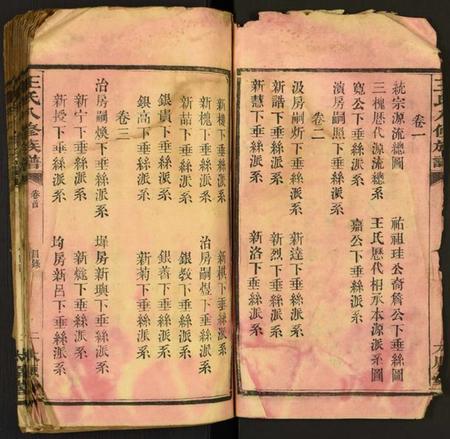 卷一
統宗源流總圖
祐祖珪公奇詹公下垂絲圖
三槐歷代源流總系
王氏歷代相承本源派系圖
寬公下垂絲派系
嘉公下垂絲派系
演房嗣照下垂絲派系
卷二
汲房嗣炘下垂絲派系
新達下垂絲派系
新誥下垂絲派系
新烈下垂絲派系
新慧下垂絲派系
新洛下垂絲派系
新棋下垂絲派系
新槐下垂絲派系
治房嗣煜下垂絲派系
新喆下垂絲派系
銀敎下垂絲派系
銀貴下垂絲派系
銀善下垂絲派系
銀高下垂絲派系
新菊下垂絲派系
卷三
治房嗣煥下垂絲派系
墀房新輿下垂絲派系
新宁下垂絲派系
新授下垂絲派系
均房新呂下垂絲派系
王氏八修族譜
卷首
目錄
二